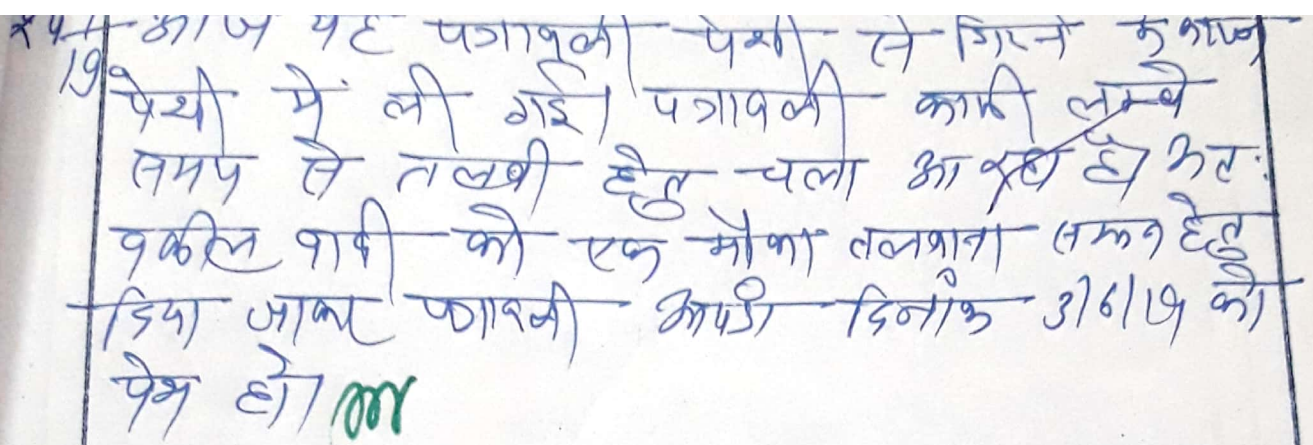 आज यह पत्रावली पेशी से गिरने के कारण
19 पेशी में ली गई। पत्रावली काफी लम्बे
समय से तलबी हेतु चला आ रहा है। अतः
वकील वादी को एक मौका तलबाना सम्मन हेतु
दिया जाकर पत्रावली दिनांक 3/6/19 को
पेश हो।